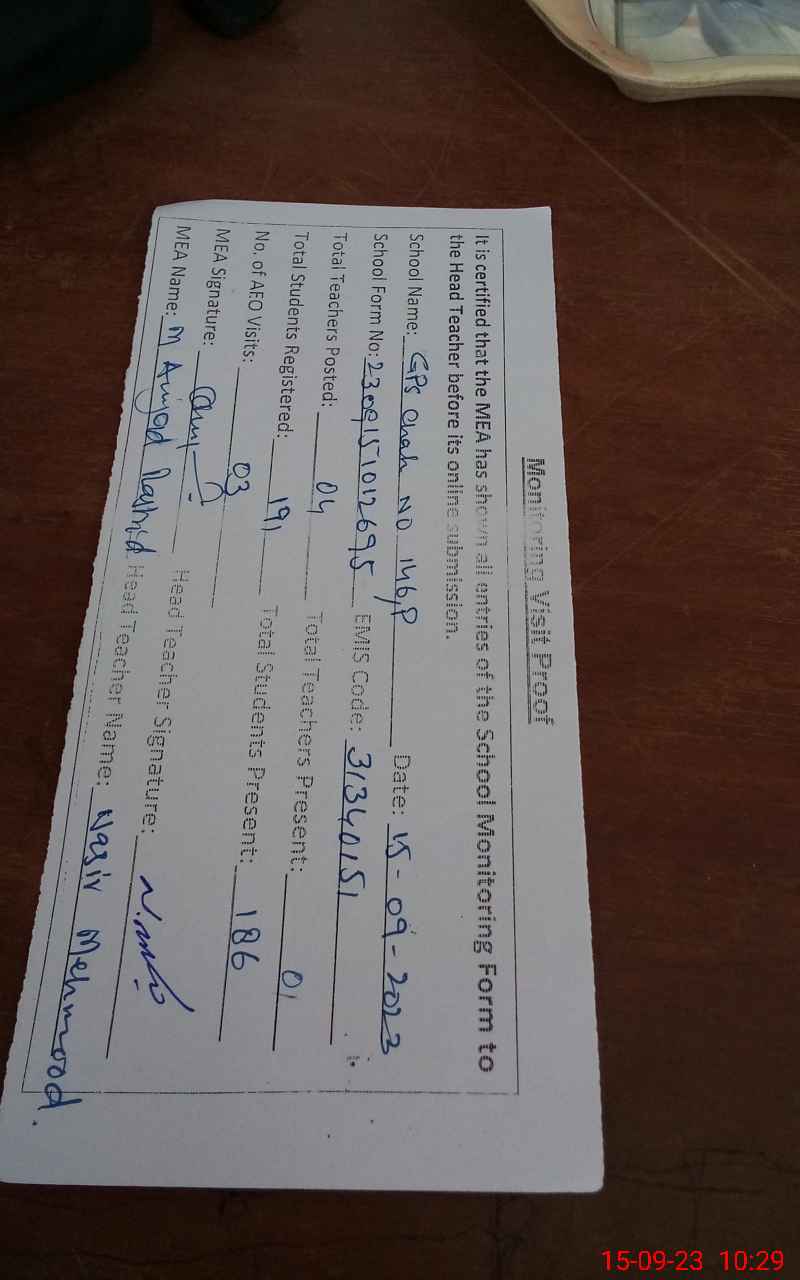 Monitoring Visit Proof
It is certified that the MEA has shown all entries of the School Monitoring Form to
the Head Teacher before its online submission.
School Name: GPS Chak NO 146/P Date: 15-09-2023
School Form No: 2309151012695 EMIS Code: 31340151
Total Teachers Posted: 04 Total Teachers Present: 01
Total Students Registered: 191 Total Students Present: 186
No. of AEO Visits: 03
MEA Signature: Head Teacher Signature:
MEA Name: M Amjad Rashid Head Teacher Name: Nasir Mehmood.
15-09-23 10:29